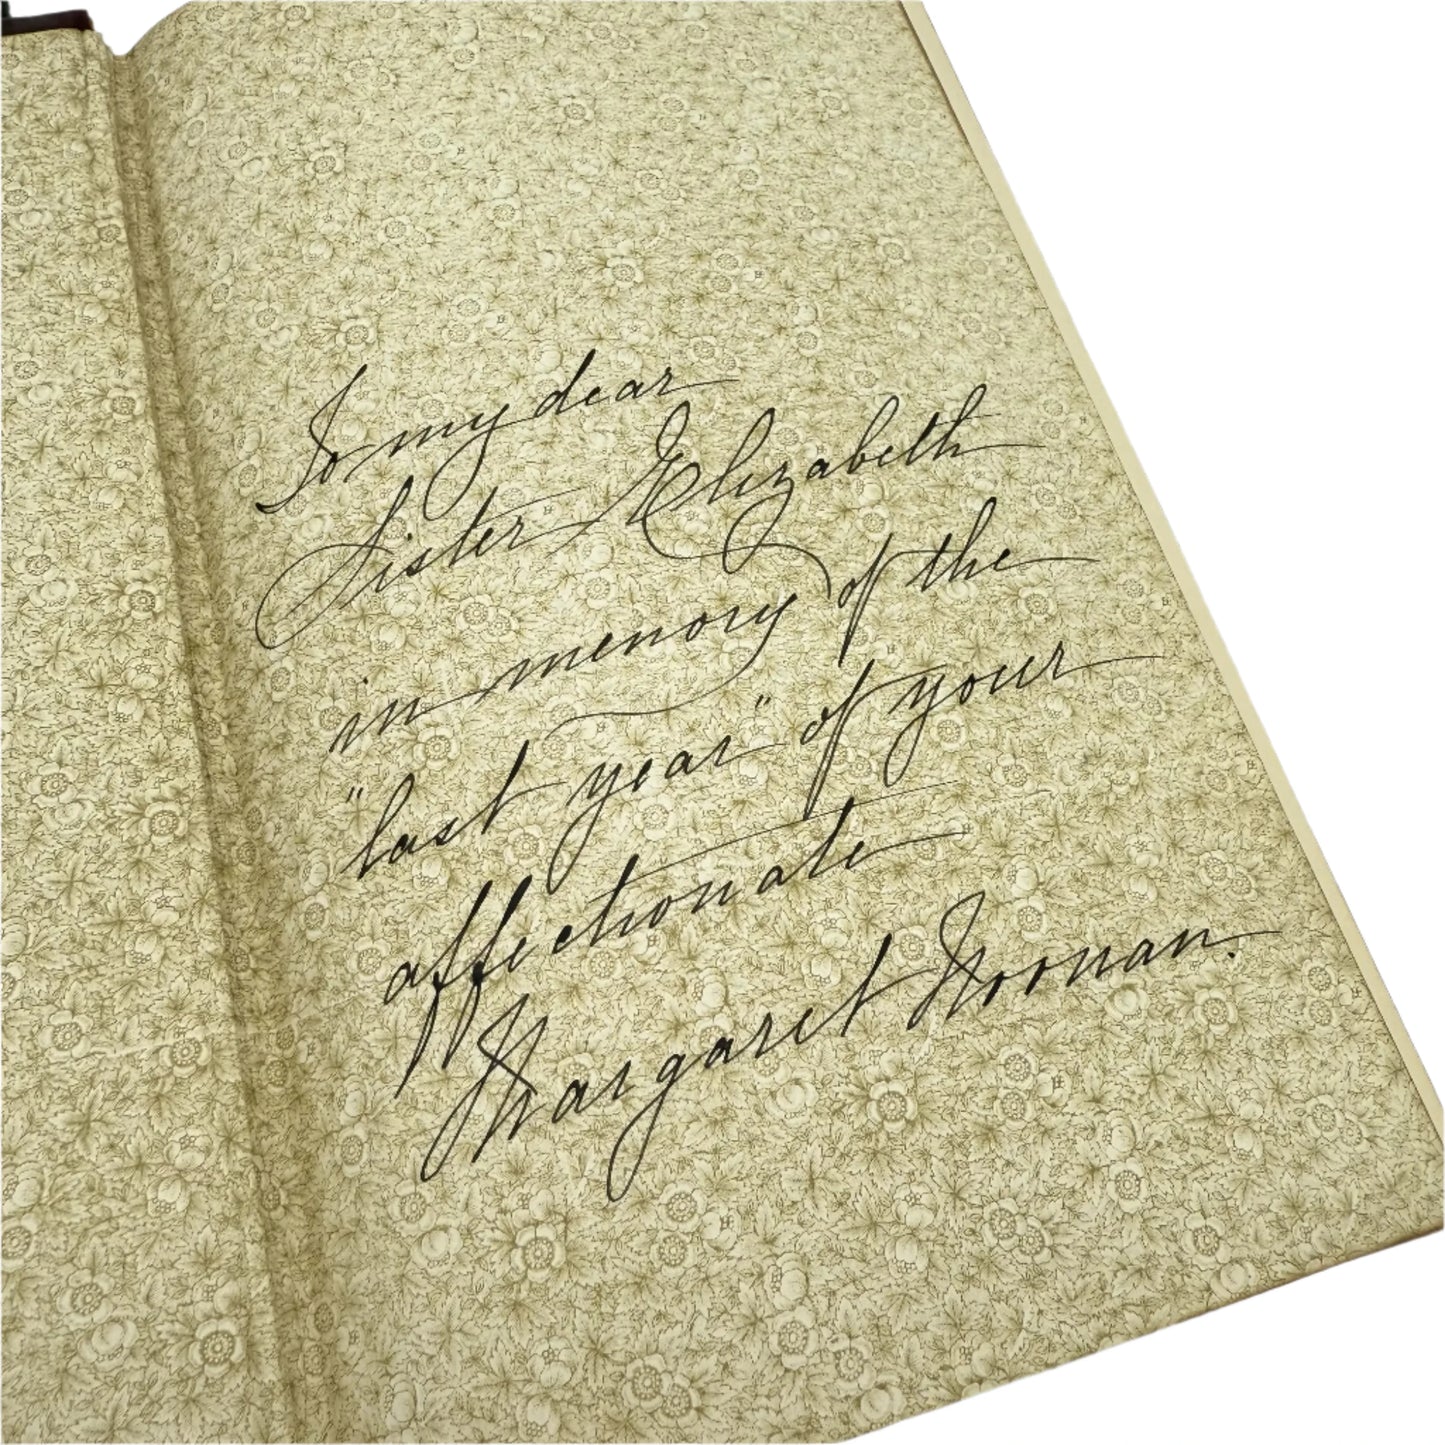 To my dear
Sister Elizabeth
in memory of the
"last year" of your
affectionate
Margaret Noonan.